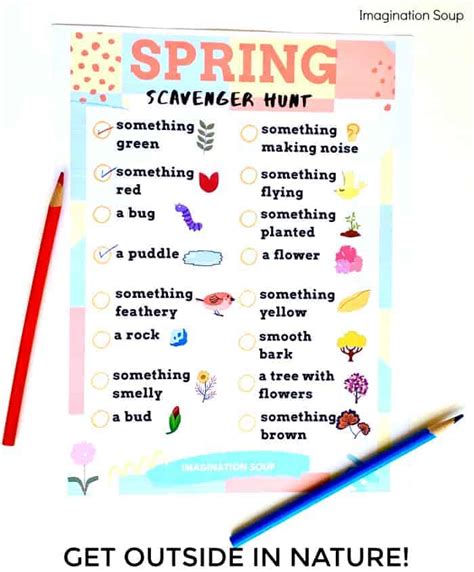 Imagination Soup
SPRING
SCAVENGER HUNT
something
green
something
red
a bug
a puddle
something
feathery
a rock
something
smelly
a bud
something
making noise
something
flying
something
planted
a flower
something
yellow
smooth
bark
a tree with
flowers
something
brown
IMAGINATION SOUP
GET OUTSIDE IN NATURE!